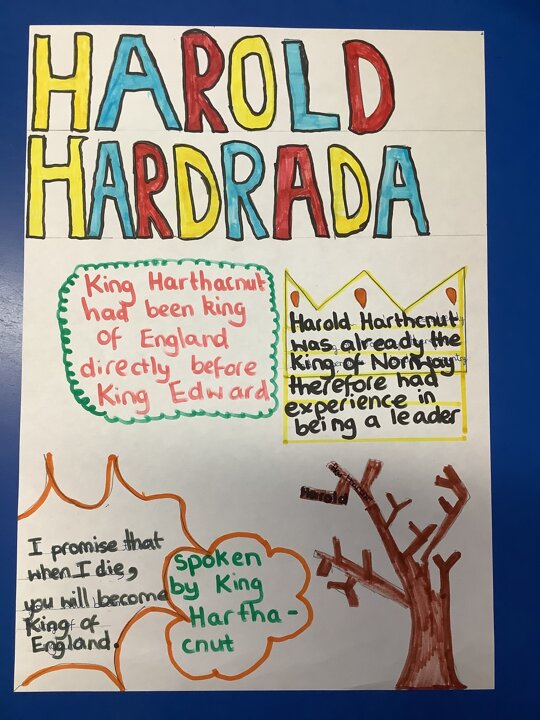 HAROLD
HARDRADA
King Harthacnut
had been king
of England
directly before
King Edward
Harold Harthcnut
was already the
King of Norway
therefore had
experience in
being a leader
I promise that
when I die,
you will become
King of
England.
spoken
by King
Hartha-
cnut
Harold